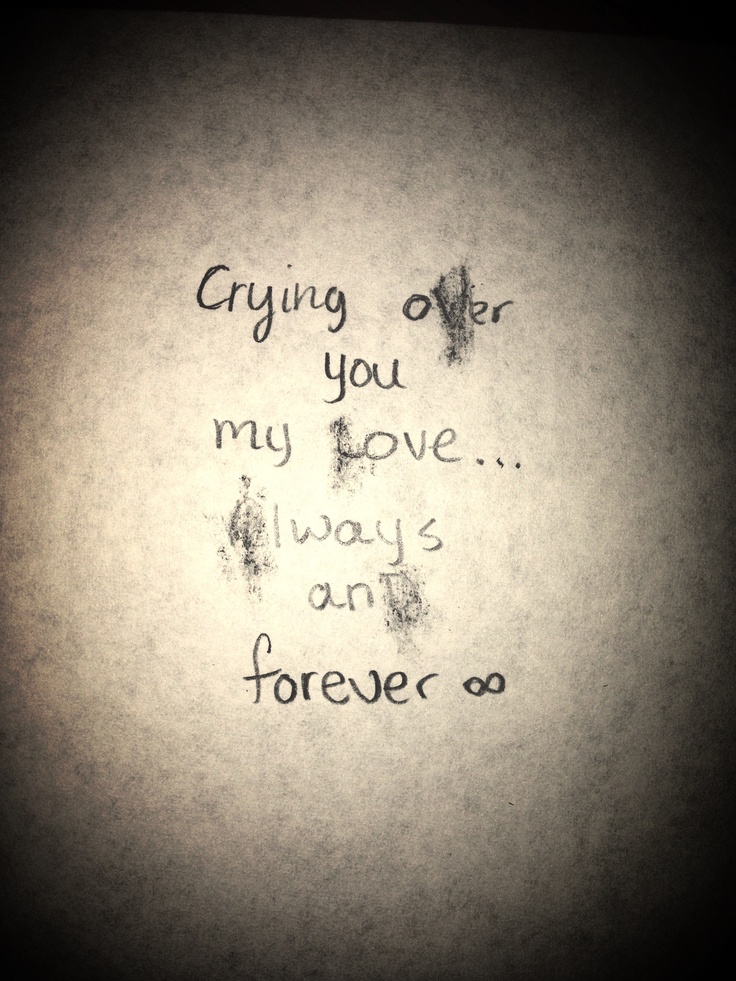 Crying over
you
my Love...
Always
anD
forever ∞